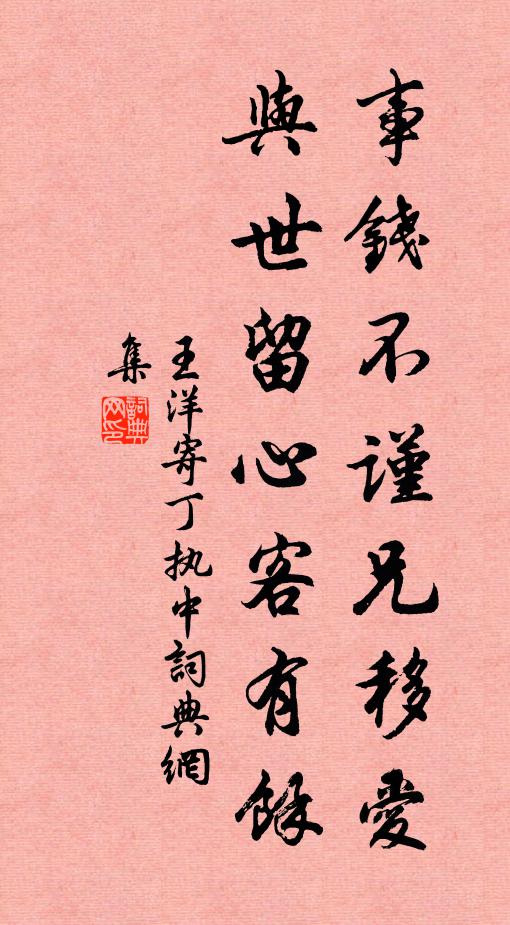 事錢不謹兄移愛
與世留心客有餘
王洋寄丁执中詞典網
集
詞典
网印